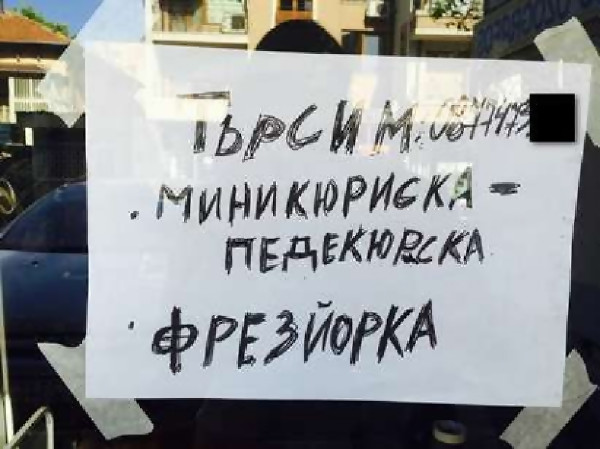 ТЪРСИМ:
• МИНИКЮРИСКА -
ПЕДЕКЮРСКА
• ФРЕЗЙОРКА